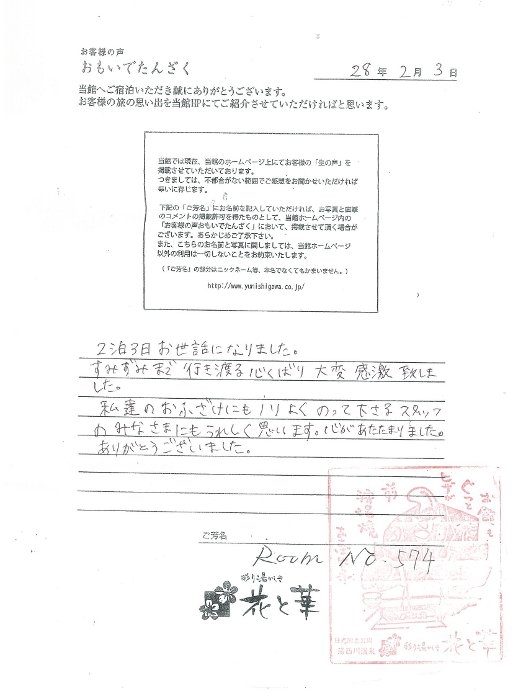 お客様の声
おもいでたんざく
28年 2月 3日
当館へご宿泊いただき誠にありがとうございます。
お客様の旅の思い出を当館HPにてご紹介させていただければと思います。
当館では現在、当館のホームページ上にてお客様の「生の声」を
掲載させていただいております。
つきましては、不都合がない範囲でご感想をお聞かせいただければ
幸いに存じます。
下記の「ご芳名」にお名前を記入していただければ、お写真と直筆
のコメントの掲載許可を得たものとして、当館ホームページ内の
「お客様の声おもいでたんざく」において、掲載させて頂く場合が
ございます。あらかじめご了承下さい。
また、こちらのお名前と写真に関しましては、当館ホームページ
以外の利用は一切しないことをお約束いたします。
(「ご芳名」の部分はニックネーム等、本名でなくてもかまいません。)
http://www.yuniishigawa.co.jp/
2泊3日お世話になりました。
すみずみまで 行き渡る心くばり 大変 感激 致しま
した。
私達のおふざけにもノリよくのって下さるスタッフ
のみなさまにもうれしく思います。心があたたまりました。
ありがとうございました。
ご芳名
Room No. 574
彩り湯かしき
花と華
湯西川温泉
彩り湯かしき
花と華